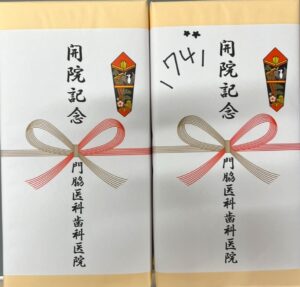 開院記念
門脇医科歯科医院
1741
開院記念
門脇医科歯科医院